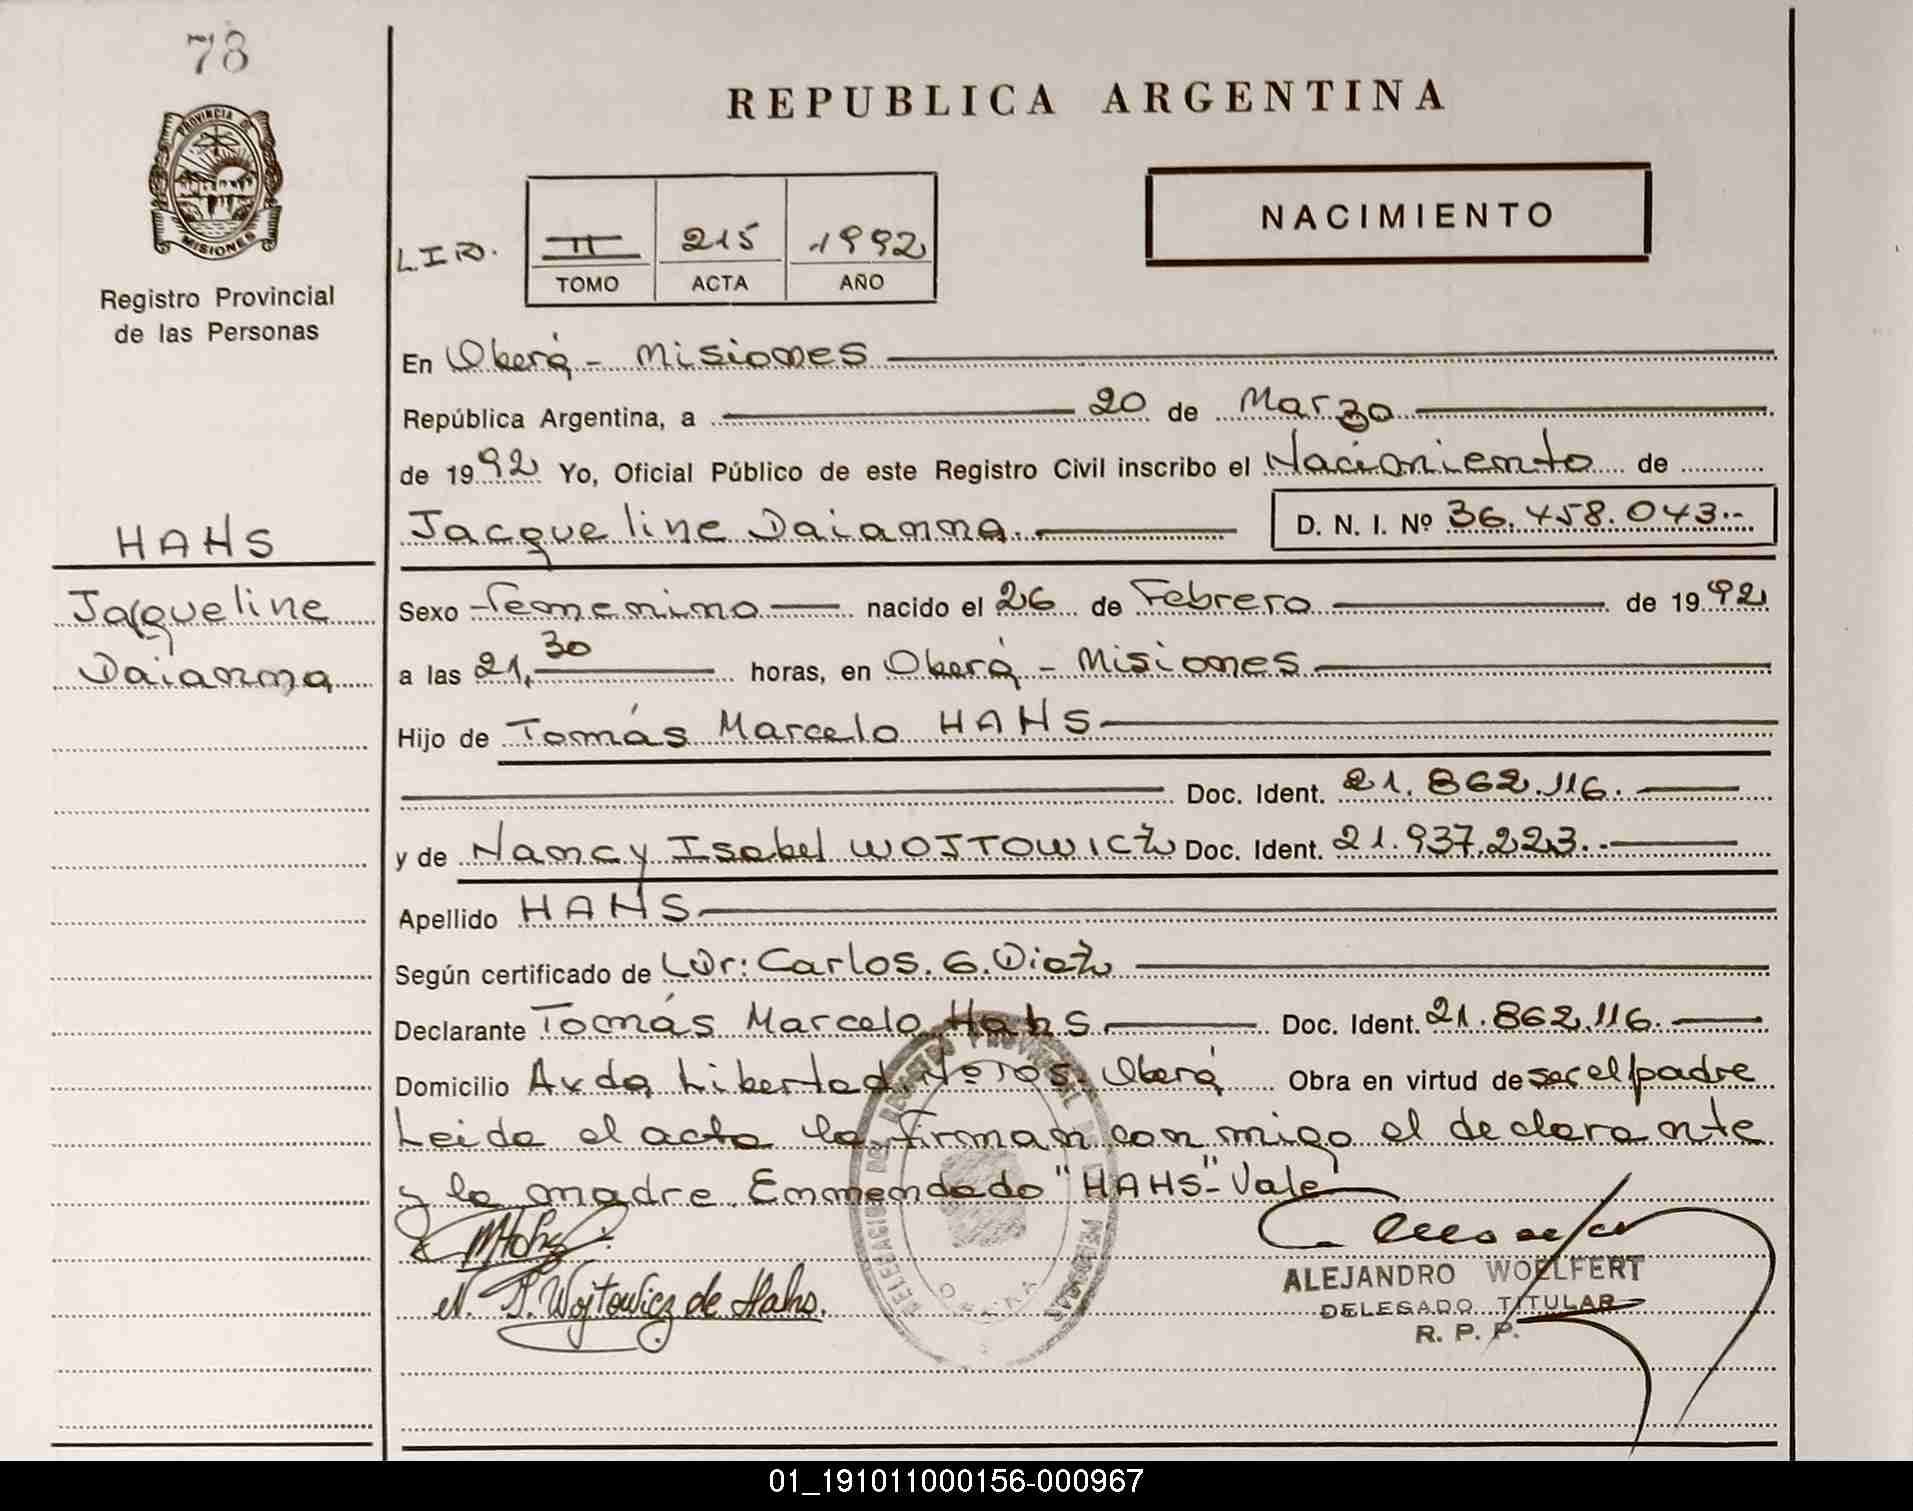 78
REPUBLICA ARGENTINA
PROVINCIA DE
MISIONES
Registro Provincial
de las Personas
II 215 1992
TOMO ACTA AÑO
NACIMIENTO
En Oberá - Misiones
República Argentina, a 20 de Marzo
de 1992 Yo, Oficial Público de este Registro Civil inscribo el Nacimiento de
Jacqueline Daianna. D. N. I. Nº 36.458.043.-
HAHS
Jacqueline
Daianna
Sexo Femenino nacido el 26 de Febrero de 1992
a las 21,30 horas, en Oberá - Misiones
Hijo de Tomás Marcelo HAHS
Doc. Ident. 21.862.116.
y de Nancy Isabel WOJTOWICZ Doc. Ident. 21.937.223.-
Apellido HAHS
Según certificado de Dr: Carlos. G. Diaz
Declarante Tomás Marcelo Hahs Doc. Ident. 21.862.116.
Domicilio Avda Libertad Oberá Obra en virtud de ser el padre
Leida el acta la firman con migo el declarante
y la madre. Enmendado "HAHS" - Vale
N. I. Wojtowicz de Hahs.
ALEJANDRO WOELFERT
DELEGADO TITULAR
R. P. P.
01_191011000156-000967